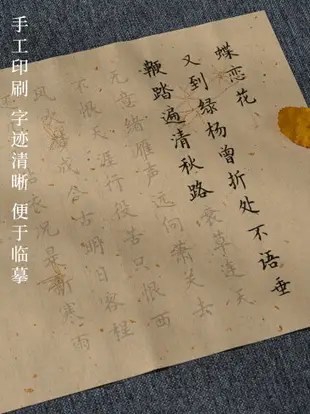 手工印刷 字迹清晰 便于临摹
蝶恋花
又到绿杨曾折处不语垂
鞭踏遍清秋路衰草连天
无意绪雁声远向萧关去
不恨天涯行役苦只恨西
风吹梦成今古明日客程
沾衣况是新寒雨